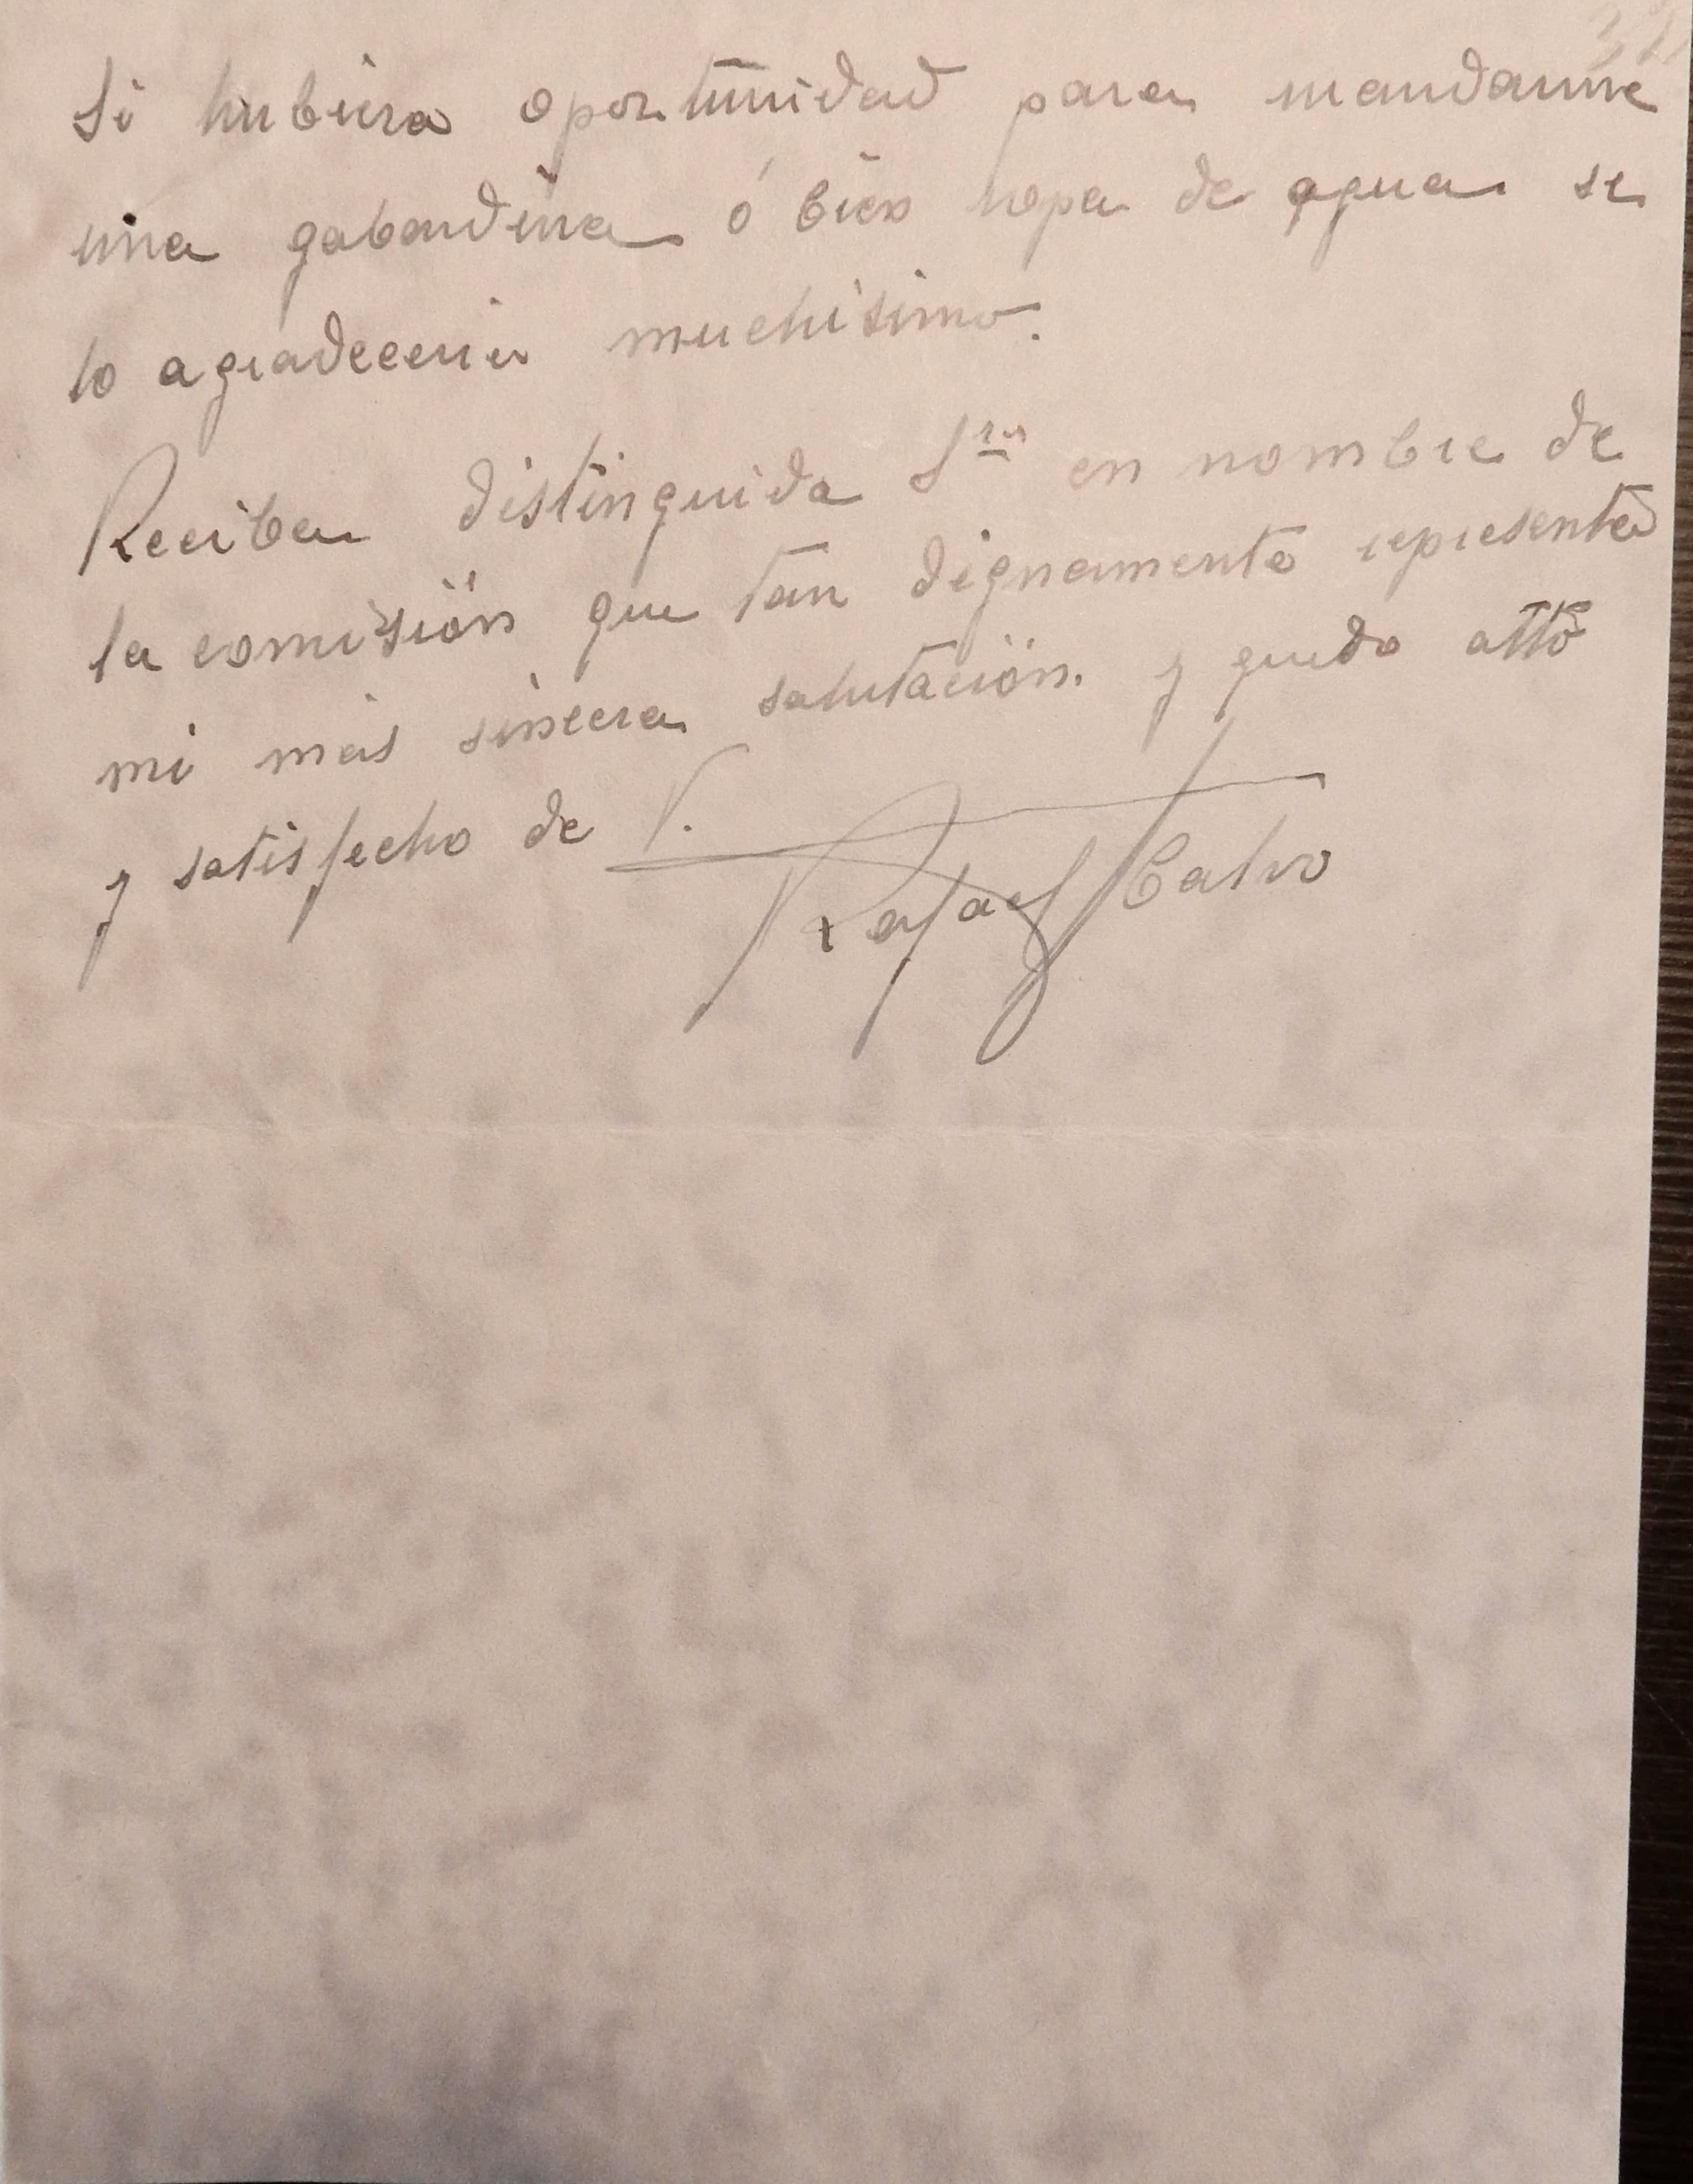 Si hubiera oportunidad para mandarme
una gabardina ó bien ropa de agua se
lo agradeceria muchisimo.
Reciba distinguida Sra en nombre de
la comisión que tan dignamente representa
mi más sincera salutación. y quedo atto
y satisfecho de V.
Rafael Calvo